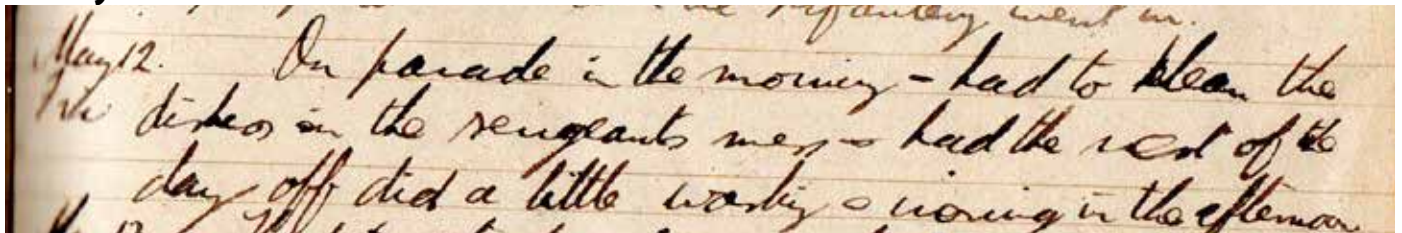 infantery went in.
May 12. On parade in the morning - had to clean the
Fri dishes in the sergeants mess - had the rest of the
day off did a little washing & ironing in the afternoon